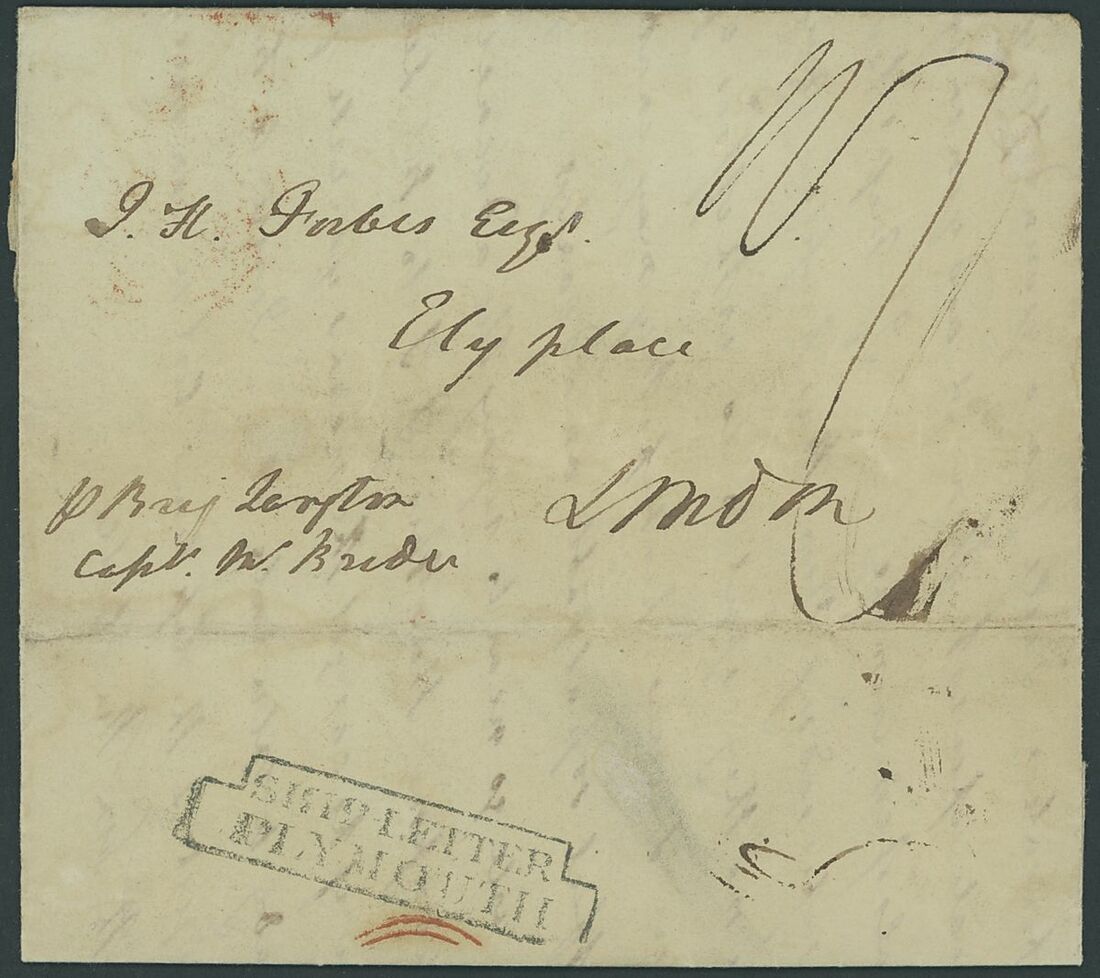 J. H. Forbes Esqr.
Ely place
London
p Brig Langton
Capt. W. Brider
SHIP LETTER
PLYMOUTH